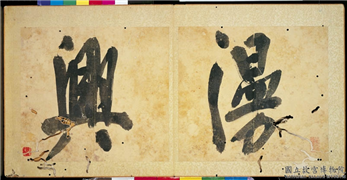 漫
興
國立故宮博物院